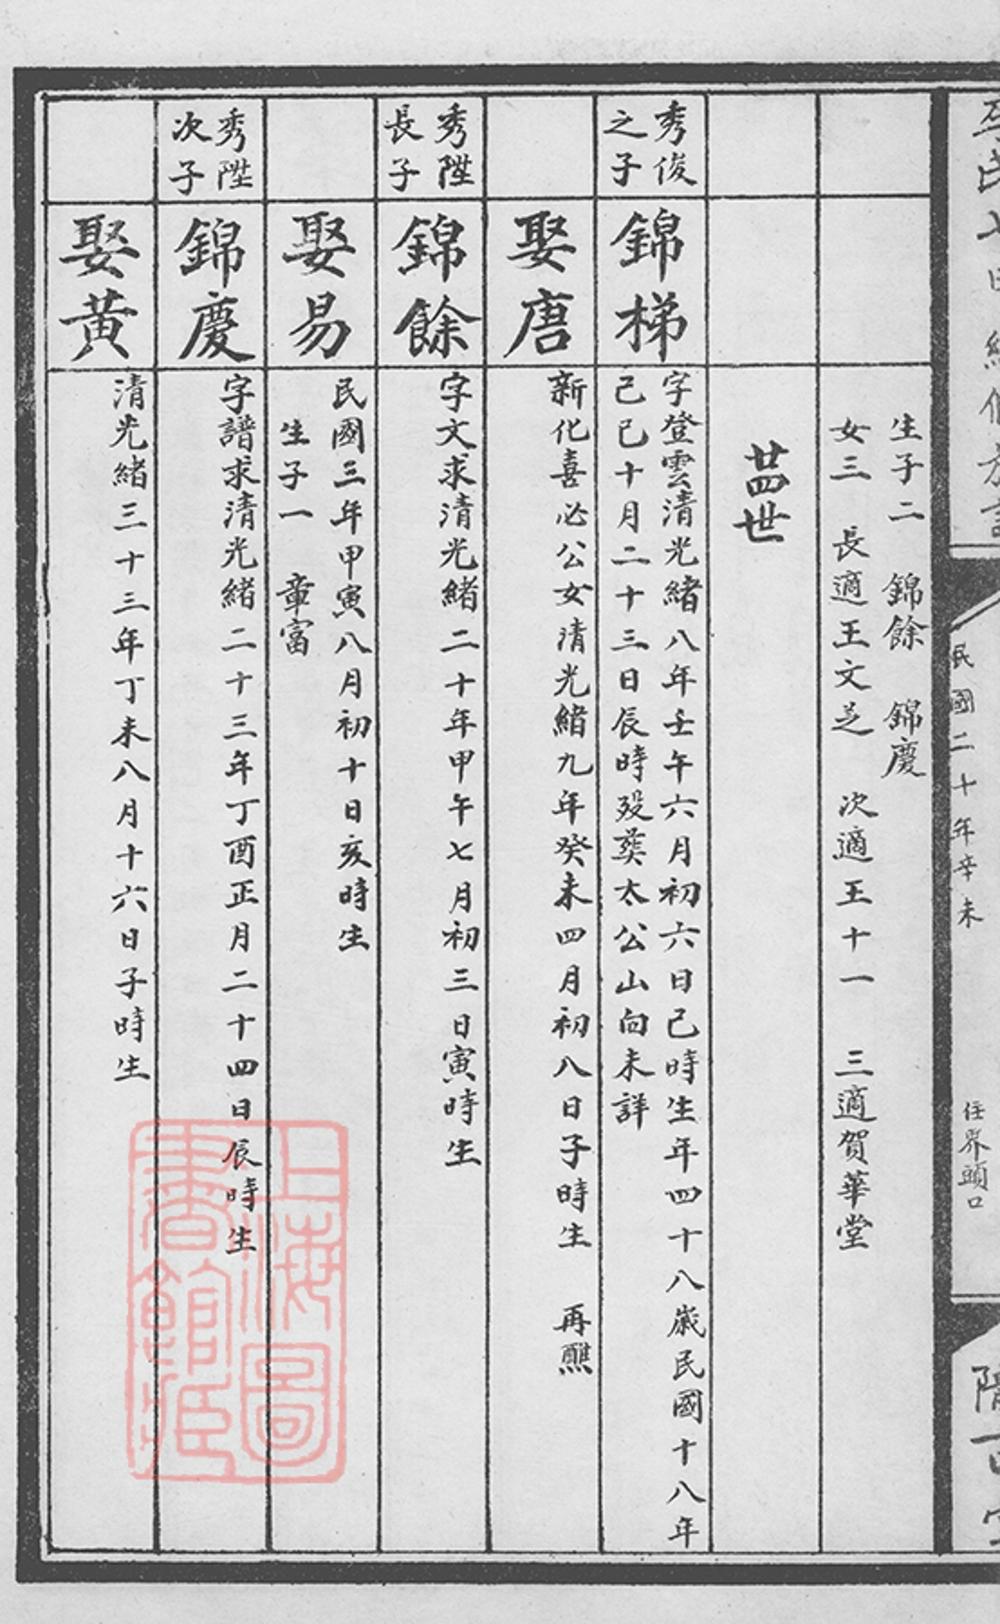 民國二十年辛未
住界頭口
生子二 錦餘 錦慶
女三 長適王文芝 次適王十一 三適賀華堂
廿四世
秀俊
之子
錦梯
字登雲清光緒八年壬午六月初六日己時生年四十八歲民國十八年
己巳十月二十三日辰時歿葬太公山向未詳
娶唐
新化喜必公女清光緒九年癸未四月初八日子時生 再醮
秀陞
長子
錦餘
字文求清光緒二十年甲午七月初三日寅時生
娶易
民國三年甲寅八月初十日亥時生
生子一 章富
秀陞
次子
錦慶
字譜求清光緒二十三年丁酉正月二十四日辰時生
娶黃
清光緒三十三年丁未八月十六日子時生
上海圖
書館藏